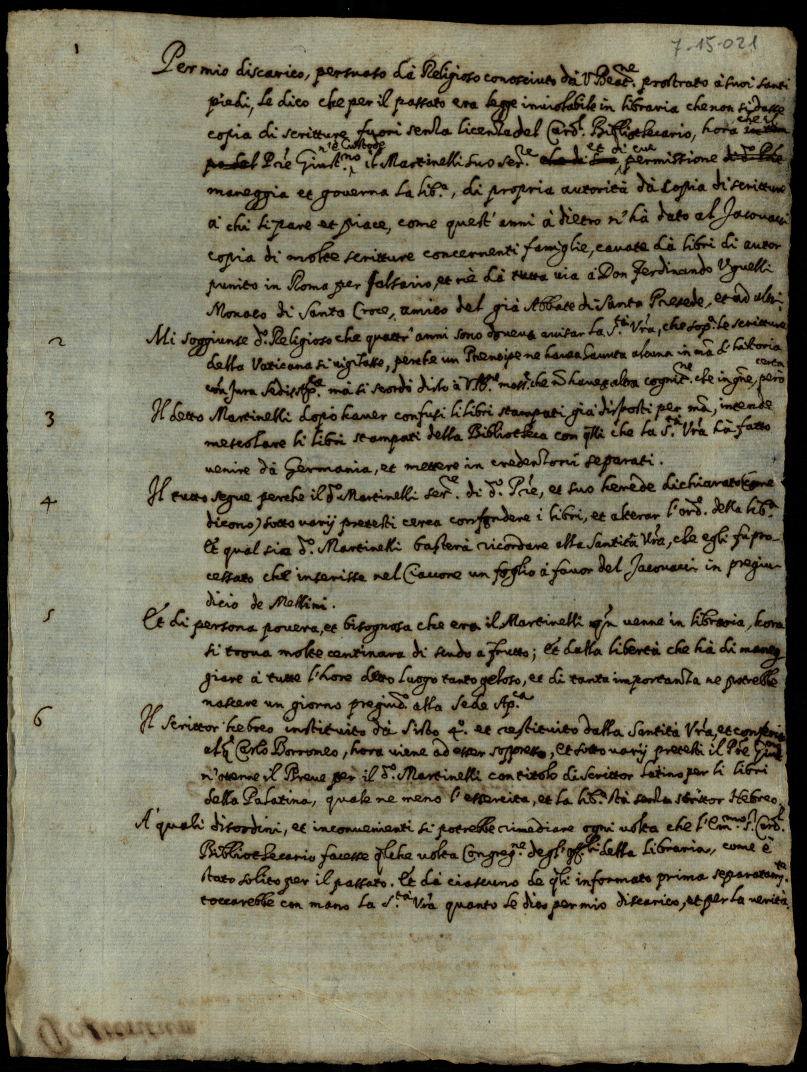 1
7-15-021
Per mio discarico, persuaso dà Religioso conosciuto dà V Beat.ne prostrato à suoi santi
piedi, le dico che per il passato era legge inviolabile in libraria che non si dasse
copia di scritture fuori senza licenza del Card.l Bibliothecario, hora che il
n'è Custode et di cui
P̃re Giust.mo il Martinelli suo ser.re permissione
maneggia et governa la lib.a, di propria autorità dà copia di scritture
à chi li pare et piace, come quest'anni à dietro n'hà dato al Jacovacci
copia di molte scritture concernenti famiglie, cavate dà libri di autor
punito in Roma per falsario, et nè dà tutta via à Don Ferdinando Vghelli
Monaco di Santa Croce, amico del già Abbate di Santa Presede, et ad altri.
2 Mi soggiunse d.o Religioso che quattr'anni sono doveva avisar la S.tà Vr̃a, che sop.a le scritture
della Vaticana si vigilasse, perche un Prencipe ne haveva havuta alcuna in mã d'historia
con Jura Sedis Ap.ca mà si scordò dirlo à
3 Il detto Martinelli dopò haver confusi li libri stampati, già disposti per mã, intende
mescolare li libri stampati della Bibliotheca con q̃lli che la S.tà Vr̃a hà fatto
venire dà Germania, et mettere in credenzoni separati.
4 Il tutto segue perche il d.o Martinelli ser.re di d.o P̃re, et suo herede dichiarato (come
dicono) sotto varij pretesti cerca confondere i libri, et alterar l'ord.e della lib.a
Et qual sia d.o Martinelli basterà ricordare alla Santità Vr̃a, che egli fù pro-
cessato che inserisse nel Ciaccone un foglio à favor del Jacovacci in pregiu-
dicio de Mellini.
5 Et di persona povera, et bisognosa che era il Martinelli q̃n venne in libraria, hora
si trova molte centinara di scudi à frutto; Et dalla libertà che hà di maneg
giare à tutte l'hore detto luogo tanto geloso, et di tanta importanza ne potrebbe
nascere un giorno pregiud.o alla Sede Ap.ca
6 Il scrittor hebreo instituito dà Sisto 4.o et restituito dalla Santità Vr̃a, et conferito
al Carlo Borromeo, hora viene ad esser soppresso, Et sotto varij pretesti il P̃re
n'ottenne il Breve per il d.o Martinelli con titolo di Scrittor Latino per li libri
della Palatina, quale ne meno l'essercita, et la lib.a stà senza scrittor Hebreo.
A' quali disordini, et inconvenienti si potrebbe rimediare ogni volta che l'Em.mo S. Card.l
Bibliothecario facesse q̃lche volta Congreg.ne degl'off.li della Libraria, come è
stato solito per il passato. Et dà ciascuno de q̃li informato prima separatam.te
toccarebbe con mano la S.tà Vr̃a quanto le dico per mio discarico, et per la verità.